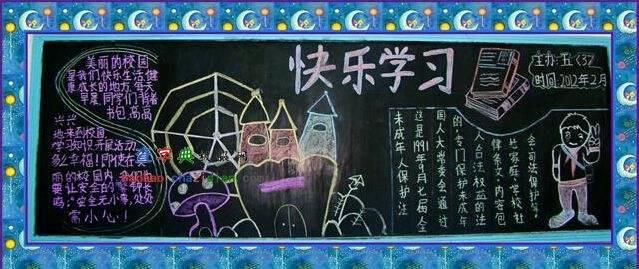 快乐学习
主办:五〈3〉
时间:2012年2月
美丽的校园
是我们快乐生活,健
康成长的地方,每天
早晨,同学们背着
书包,高高
兴兴
地来到校园
学习知识开展活动,
多么幸福!即使在美
丽的校园内,我们也
要让安全的警钟长
鸣:"安全无小事,处处
需小心!
这是1991年9月七届全
国人大常委会通过
的,专门保护未成年
人合法权益的法
律条文,内容包
括家庭、学校、社
会、司法保护。
未成年人保护法